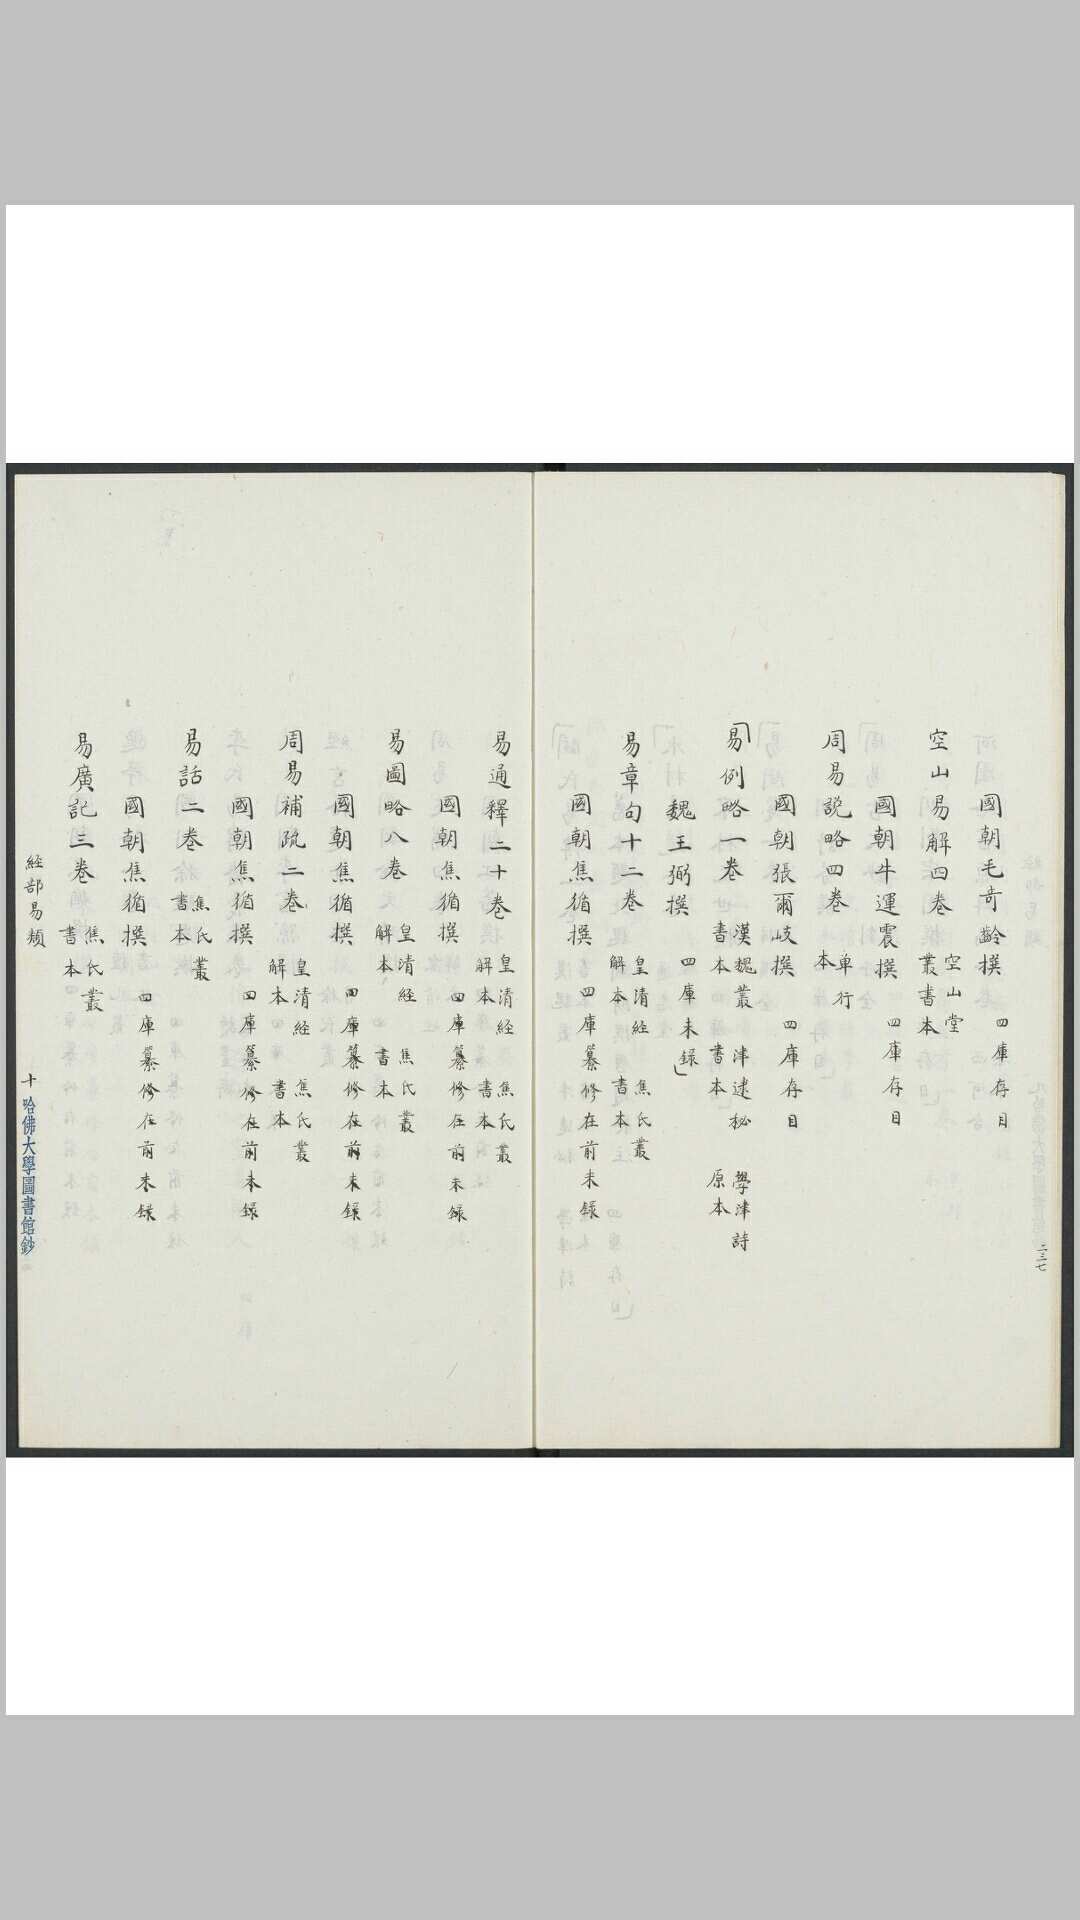 國朝毛奇齡撰 四庫存目
空山易解四卷 空山堂叢書本
國朝牛運震撰 四庫存目
周易説略四卷 單行本
國朝張爾岐撰 四庫存目
「易例略一卷 漢魏叢書本 津逮秘書本 學津詩原本
魏王弼撰 四庫未録」
易章句十二卷 皇清經解本 焦氏叢書本
國朝焦循撰 四庫纂修在前未録
易通釋二十卷 皇清經解本 焦氏叢書本
國朝焦循撰 四庫纂修在前未録
易圖略八卷 皇清經解本 焦氏叢書本
國朝焦循撰 四庫纂修在前未録
周易補疏二卷 皇清經解本 焦氏叢書本
國朝焦循撰 四庫纂修在前未録
易話二卷 焦氏叢書本
國朝焦循撰 四庫纂修在前未録
易廣記三卷 焦氏叢書本
経部易類
十 哈佛大學圖書館鈔
二三七